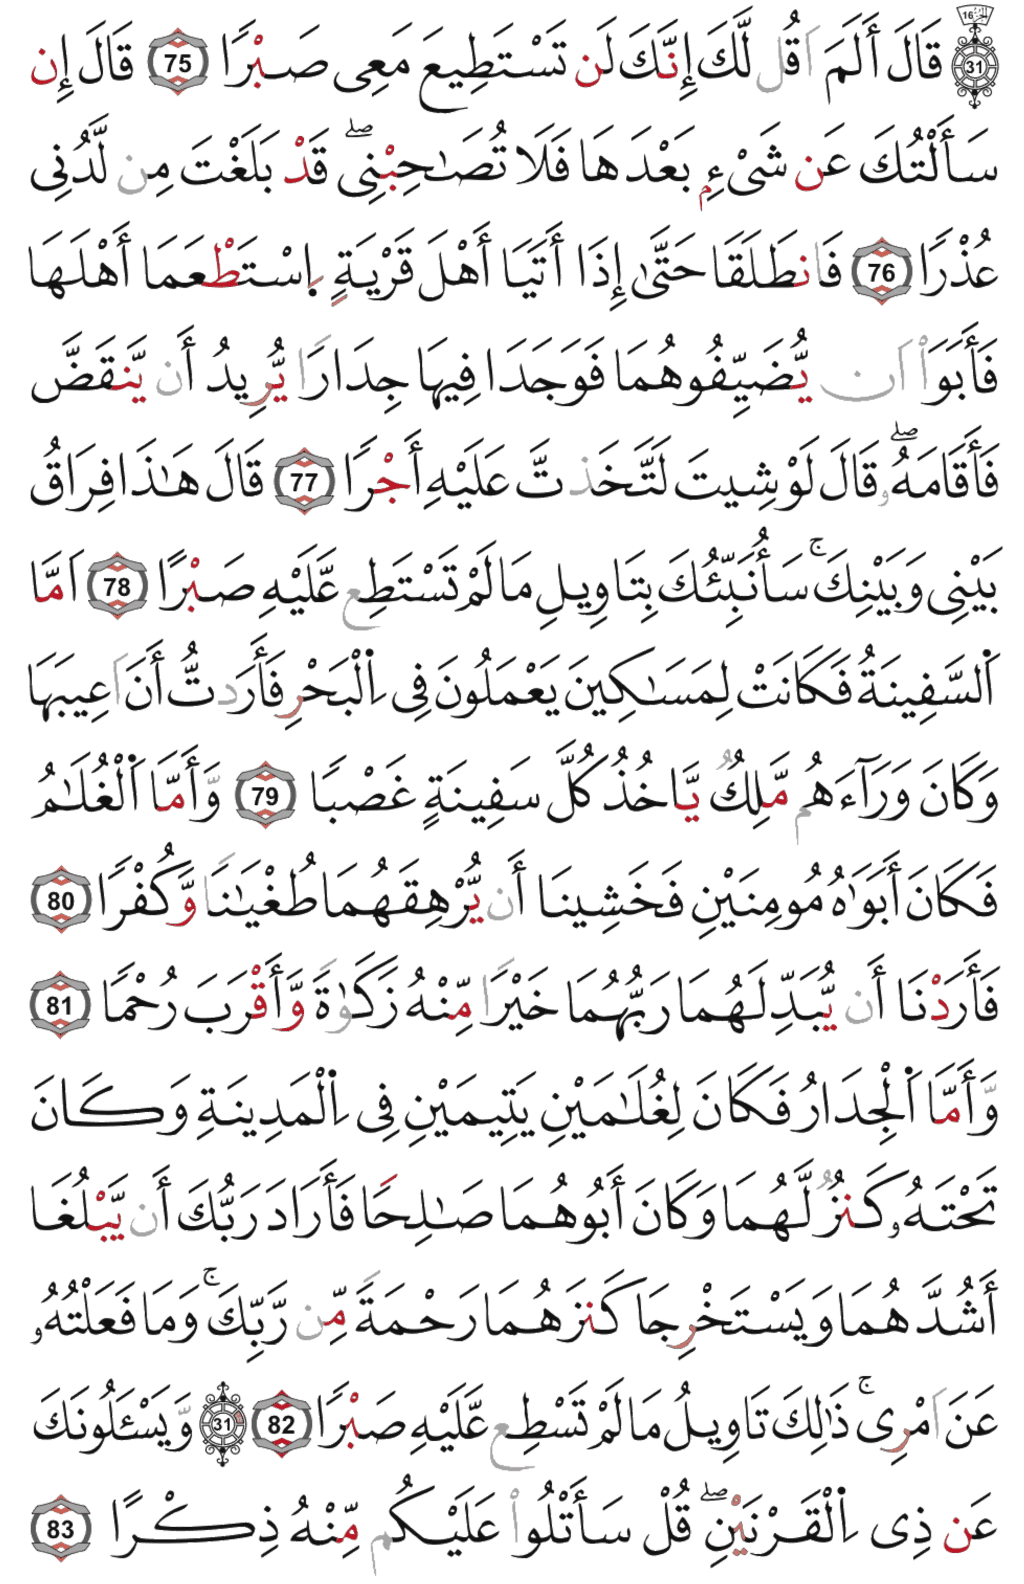 الجزء 16 31 قَالَ أَلَمَ اَقُل لَّكَ إِنَّكَ لَن تَسْتَطِيعَ مَعِى صَبْرًا 75 قَالَ إِن
سَأَلْتُكَ عَن شَىْءِۭ بَعْدَهَا فَلَا تُصَٰحِبْنِى ۖ قَدْ بَلَغْتَ مِن لَّدُنِى
عُذْرًا 76 فَانطَلَقَا حَتَّىٰ إِذَا أَتَيَا أَهْلَ قَرْيَةٍ اِ۪سْتَطْعَمَا أَهْلَهَا
فَأَبَوَاْ اَن يُّضَيِّفُوهُمَا فَوَجَدَا فِيهَا جِدَارًا يُّرِيدُ أَن يَّنقَضَّ
فَأَقَامَهُۥ ۖ قَالَ لَوْ شِيتَ لَتَّخَذتَّ عَلَيْهِ أَجْرًا 77 قَالَ هَٰذَا فِرَاقُ
بَيْنِى وَبَيْنِكَ ۚ سَأُنَبِّئُكَ بِتَاوِيلِ مَا لَمْ تَسْتَطِع عَّلَيْهِ صَبْرًا 78 اَمَّا
اَ۬لسَّفِينَةُ فَكَانَتْ لِمَسَٰكِينَ يَعْمَلُونَ فِى اِ۬لْبَحْرِ فَأَرَدتُّ أَنَ اَعِيبَهَا
وَكَانَ وَرَآءَهُم مَّلِكٌ يَّاخُذُ كُلَّ سَفِينَةٍ غَصْبًا 79 وَّأَمَّا اَ۬لْغُلَٰمُ
فَكَانَ أَبَوَٰهُ مُومِنَيْنِ فَخَشِينَا أَن يُّرْهِقَهُمَا طُغْيَٰنًا وَّكُفْرًا 80
فَأَرَدْنَا أَن يُّبَدِّلَهُمَا رَبُّهُمَا خَيْرًا مِّنْهُ زَكَوٰةً وَّأَقْرَبَ رُحْمًا 81
وَّأَمَّا اَ۬لْجِدَارُ فَكَانَ لِغُلَٰمَيْنِ يَتِيمَيْنِ فِى اِ۬لْمَدِينَةِ وَكَانَ
تَحْتَهُۥ كَنزٌ لَّهُمَا وَكَانَ أَبُوهُمَا صَٰلِحًا فَأَرَادَ رَبُّكَ أَن يَّبْلُغَا
أَشُدَّهُمَا وَيَسْتَخْرِجَا كَنزَهُمَا رَحْمَةً مِّن رَّبِّكَ ۚ وَمَا فَعَلْتُهُۥ
عَنَ اَمْرِى ۚ ذَٰلِكَ تَاوِيلُ مَا لَمْ تَسْطِع عَّلَيْهِ صَبْرًا 82 31 وَّيَسْـَٔلُونَكَ
عَن ذِى اِ۬لْقَرْنَيْنِ ۖ قُلْ سَأَتْلُواْ عَلَيْكُم مِّنْهُ ذِكْرًا 83